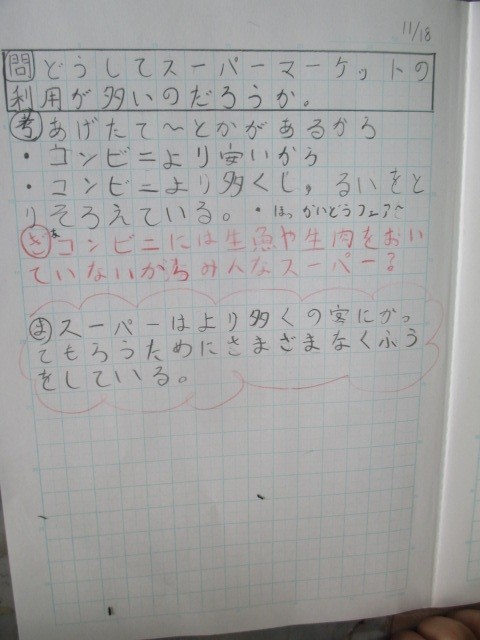 11/18
問 どうしてスーパーマーケットの
利用が多いのだろうか。
考 あげたて〜とかがあるから
・コンビニより安いから
・コンビニより多くし,るいをと
りそろえている。・ほっかいどうフェア〜
き コンビニには生魚や生肉をおい
ていないからみんなスーパー?
ま スーパーはより多くの客にかっ
てもろうためにさまざまなくふう
をしている。